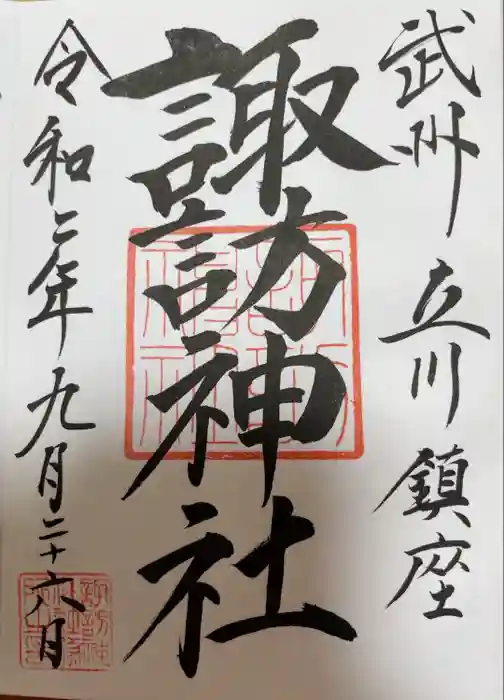 武州立川鎮座
諏訪神社
令和二年九月二十六月